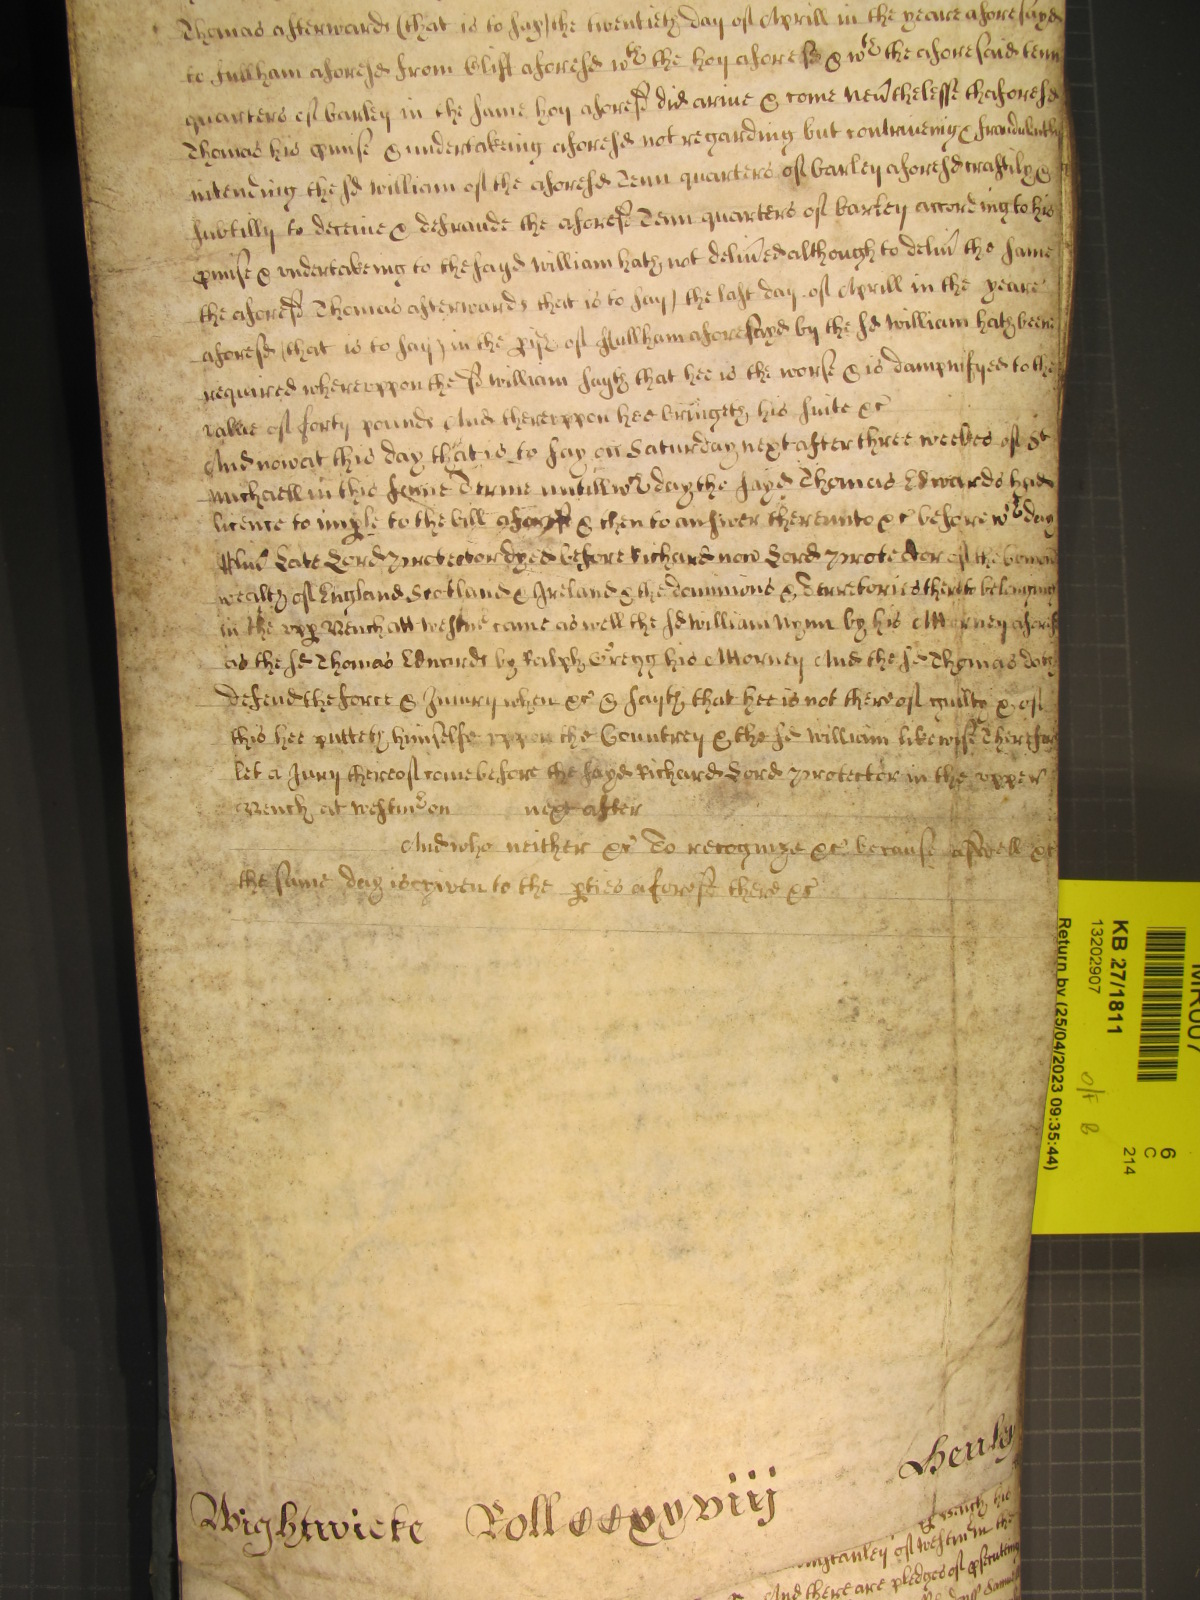 Thomas afterwards (that is to say) the twentieth day of Aprill in the yeare aforesayd
to Fullham aforesd from Cliff aforesd wth the hoy aforesd & wth the aforesaid tenn
quarters of barley in the same hoy aforesd did arive & come nevthelesse thaforesd
Thomas his pmise & undertakeing aforesd not regarding but contriveing & fraudulently
intending the sd William of the aforesd Tenn quarters of barley aforesd craftily &
subtilly to deceive & defraude the aforesd Tenn quarters of barley according to his
pmise & undertakeing to the sayd William hath not delived although to deliv the same
the aforesd Thomas afterwards that is to say) the last day of Aprill in the yeare
aforesd (that is to say) in the pish of Fullham aforesayd by the sd William hath beene
required whereuppon the sd William sayth that hee is the worse & is dampnifyed to the
value of forty pounds And thereuppon hee bringeth his suite &c
And now at this day that is to say on Saturday next after three weekes of St
Michaell in this same Terme untill wch day the sayd Thomas Edwards had
licence to imple to the bill & then to answer thereunto &c before wch day
late Lord Protector dyed before Richard now Lord Protector of the Comon
wealth of England Scotland & Ireland & the dominions & Terretories thereto belonging
in the upp Bench att Westmr came as well the sd William by his Attorney aforesd
as the sd Thomas Edwards by Ralph Gregg his Attorney And the sd Thomas doth
defend the force & Iniury when &c & sayth that hee is not thereof guilty & of
this hee putteth himselfe uppon the Countrey & the sd William likewise Therefore
let a Jury thereof come before the sayd Richard Lord Protector in the upper
Bench at Westmr on next after
And who neither &c To recognize &c because aswell &c
the same day is given to the pties aforesd there &c
Wightwicke Roll CCxxviij Henley
of Westmr in the
And there are pledges of psecuting
MR007
KB 27/1811
13202907
Return by (25/04/2023 09:35:44)
O/F B
6
C
214